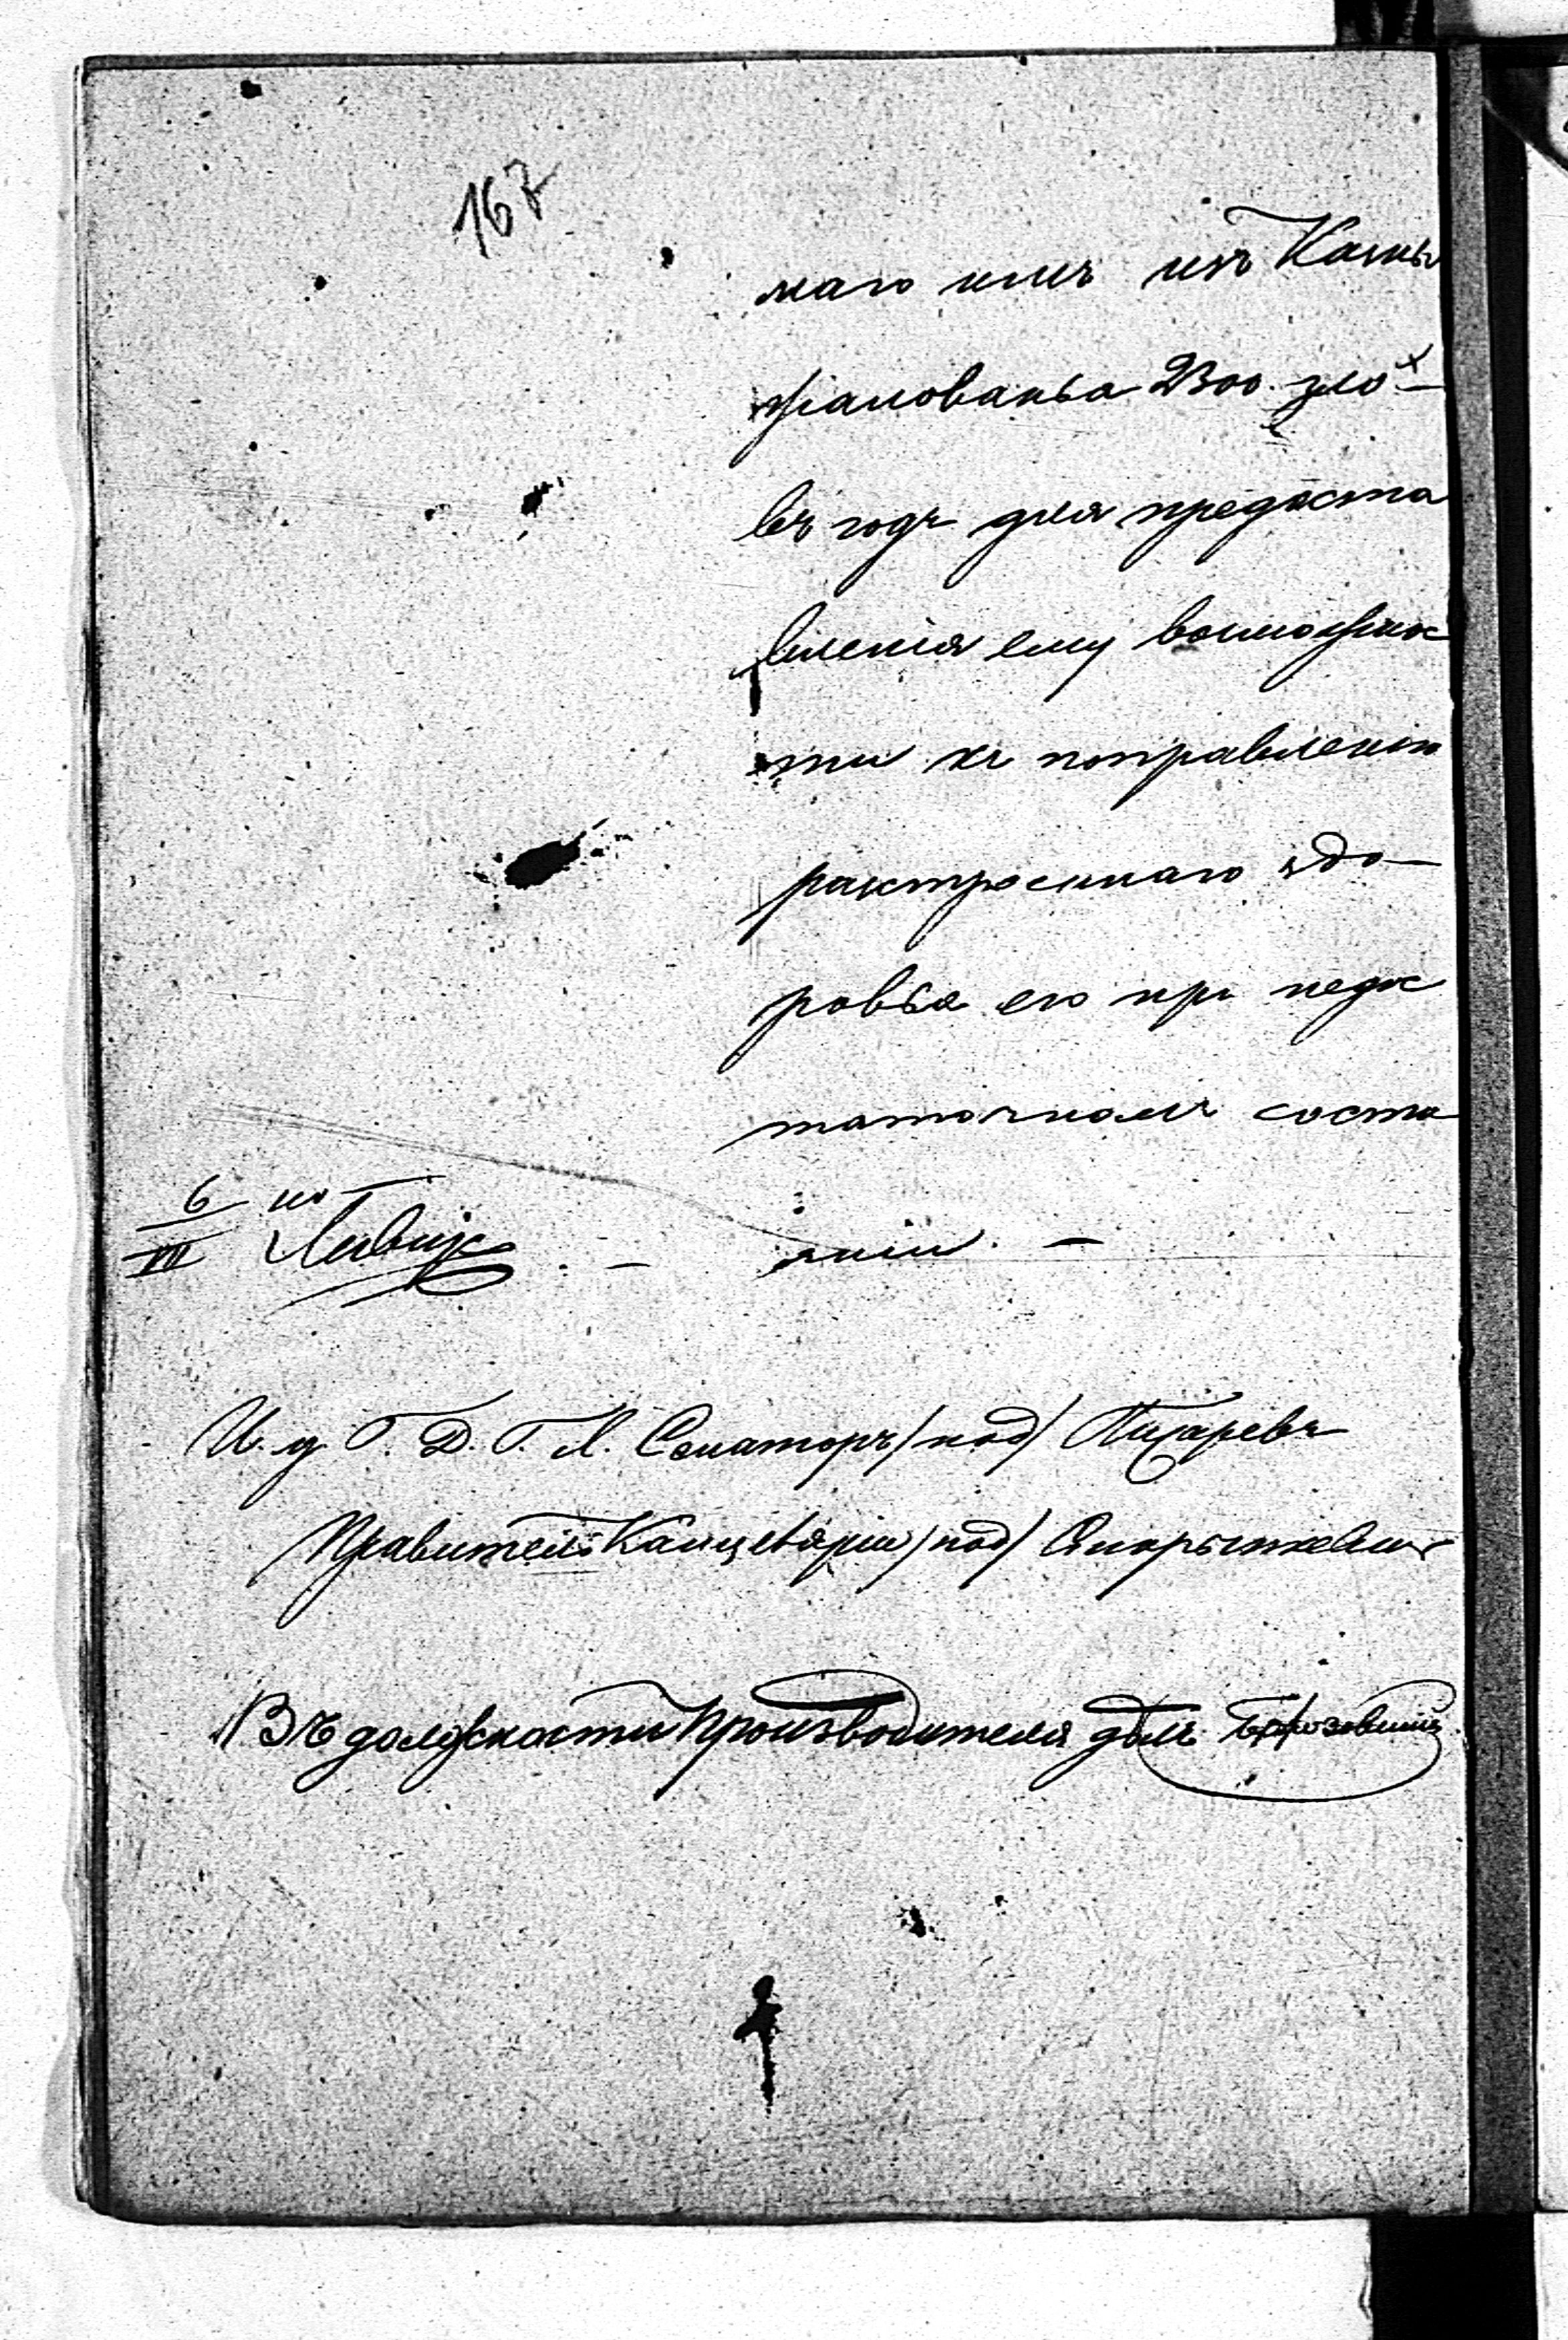 167
маго имъ изъ Казны
жалованья 2300. зло-
въ годъ для предоста
вленія ему возможнос
ти къ поправленію
разстроеннаго здо-
ровья его при недос
таточномъ состо
яніи. —
6/III но
И. д. Г. Д. Г. Л. Сенаторъ /под/ Писаревъ
Правитель Канцеляріи /под/
Въ должности Производителя дѣлъ